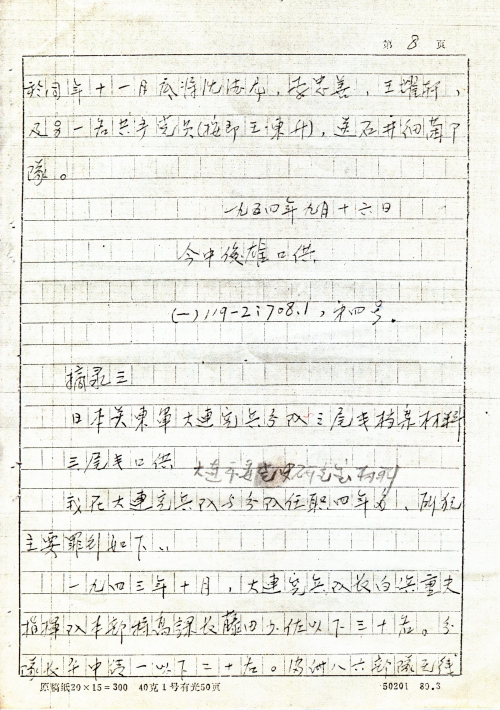 第 8 页
於同年十一月底将沈得龙，李忠善，王耀轩，
及另一名共产党员(按即王东升)，送石井细菌部
隊。
一九五四年九月十六日
今中俊雄口供
(一)119-2:708.1，第四号。
摘录三
日本关東軍大連宪兵分队三尾丰档案材料
三尾丰口供
大连市委党史研究室
我在大连宪兵队与分队任职四年多，所犯
主要罪行如下：
一九四三年十月，大連宪兵队长白浜重夫
指挥队本部特高課长藤田少佐以下三十名。分
隊长 以下二十名。
原稿纸20×15=300 40克1号有光50页 50201 89.3